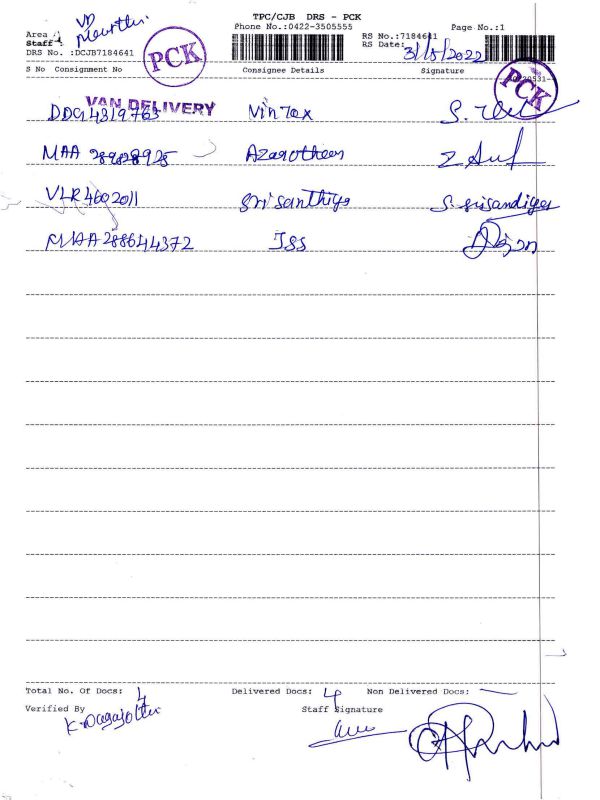 TPC/CJB DRS - PCK
Phone No.:0422-3505555
Page No.:1
VD
Area :
Staff :
DRS No. :DCJB7184641
PCK
RS No.:7184641
RS Date: 31/5/2022
S No Consignment No Consignee Details Signature
PCK
VAN DELIVERY
DDG4319763 Vin Tax
MAA 289828925
VLR4602011 Sri Santhiya S. Srisandiya
MAA288644372 JSS
Total No. Of Docs: 4 Delivered Docs: 4 Non Delivered Docs: —
Verified By Staff Signature